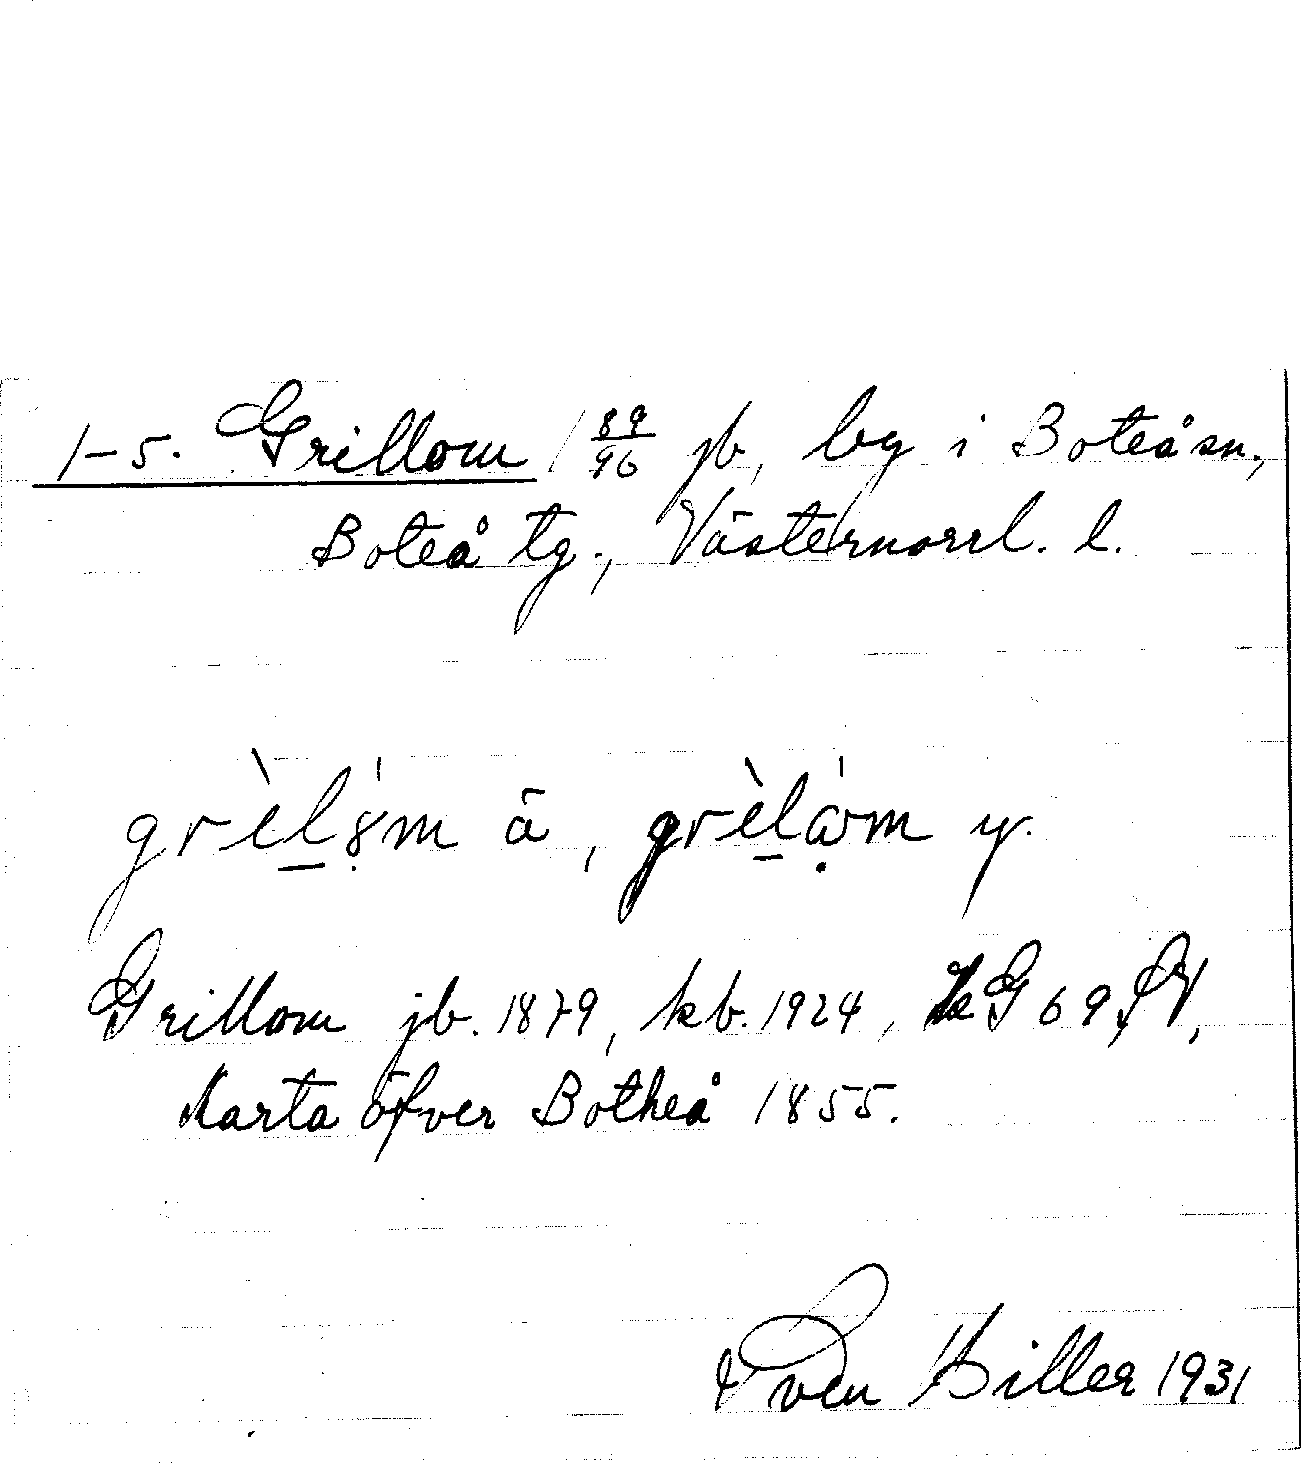 1-5. Grillom 1 89/96 jb, by i Boteå sn.,
Boteå tg., Västernorrl. l.
grèl8m ä, grèlωm y.
Grillom jb. 1879, kb. 1924, G 69 SV,
Karta öfver Botheå 1855.
Sven Hiller 1931